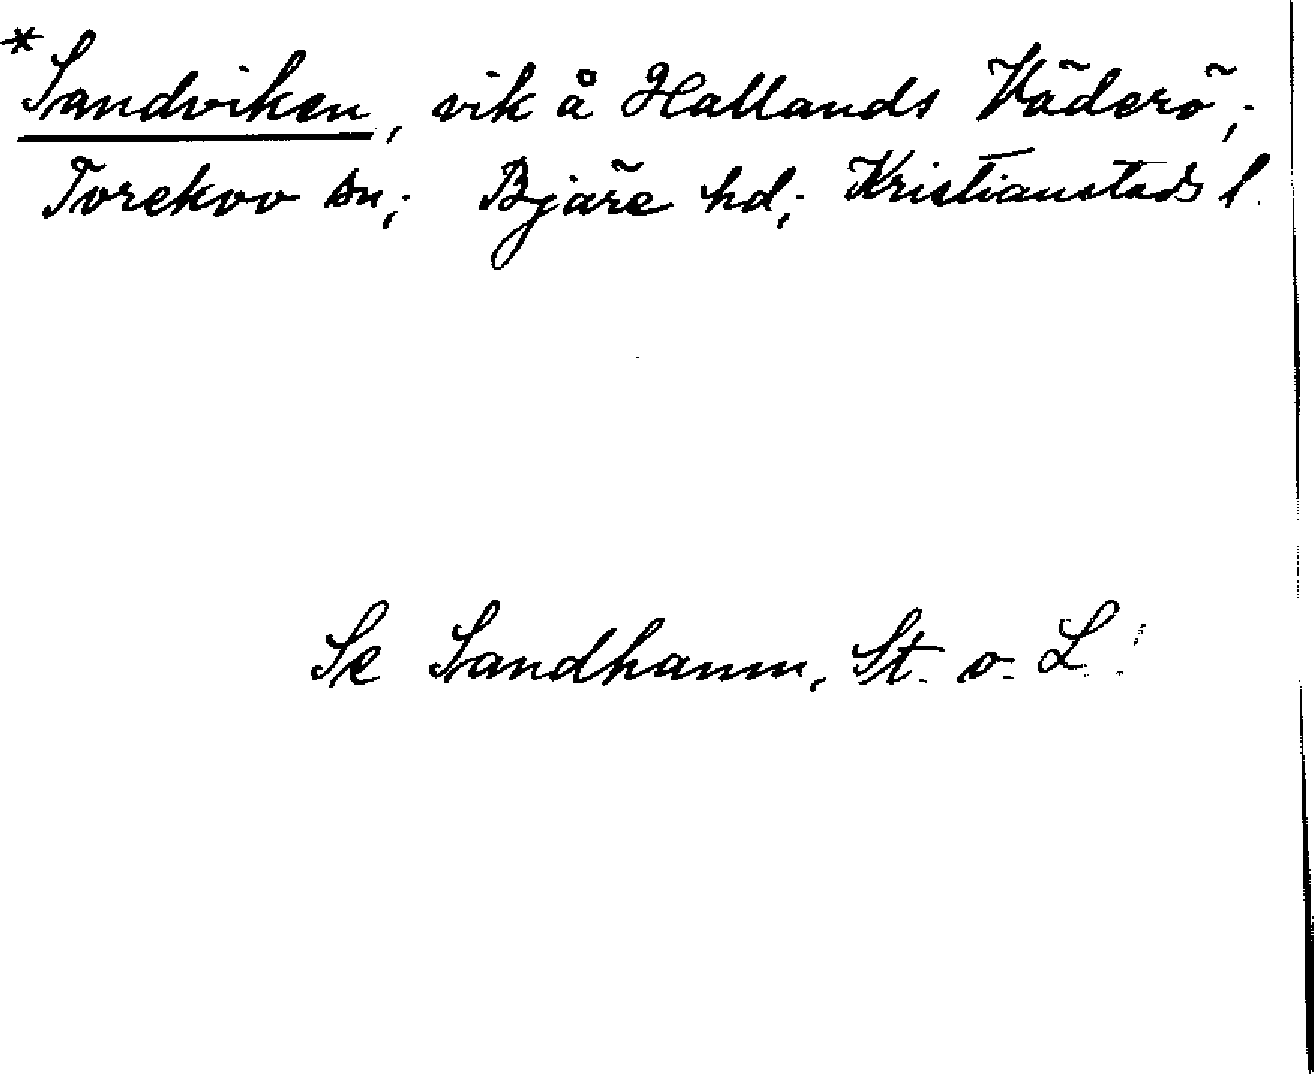 *Sandviken, vik å Hallands Väderö,;
Torekov sn,; Bjäre hd,; Kristianstads l.
Se Sandhamn, St. o. L.